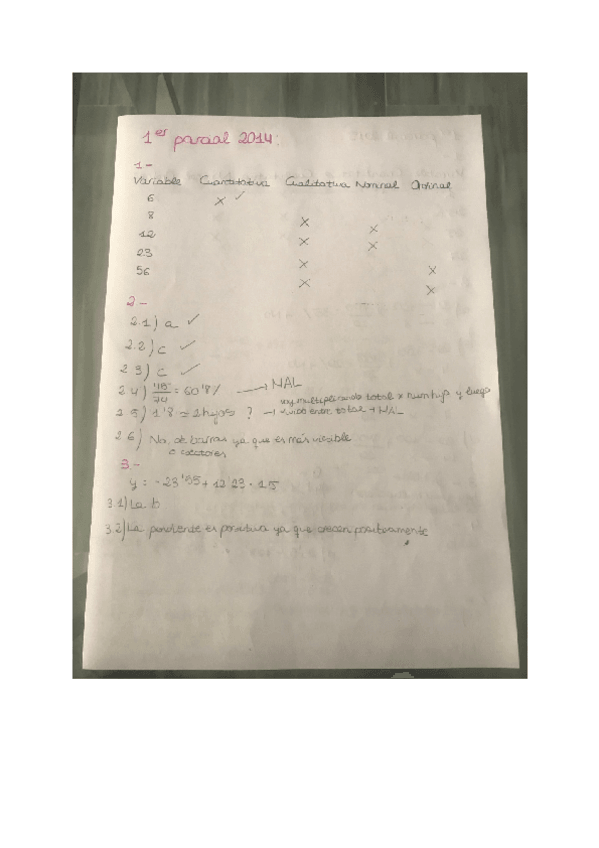 1er parcial 2014:
1-
Variable Cuantitativa Cualitativa Nominal Ordinal
6 X ✓
8 X X
12 X X
23 X X
56 X X
2-
2.1) a ✓
2.2) c ✓
2.3) c ✓
2.4) 45/74 = 60'8% → MAL
multiplicando total x num hijos y luego
2.5) 1'8 = 2 hijos ? → divido entre total → MAL
2.6) No, de barras ya que es más visible
o sectores
3.-
y = -23'55 + 12'23 · 15
3.1) La b
3.2) La pendiente es positiva ya que crecen positivamente